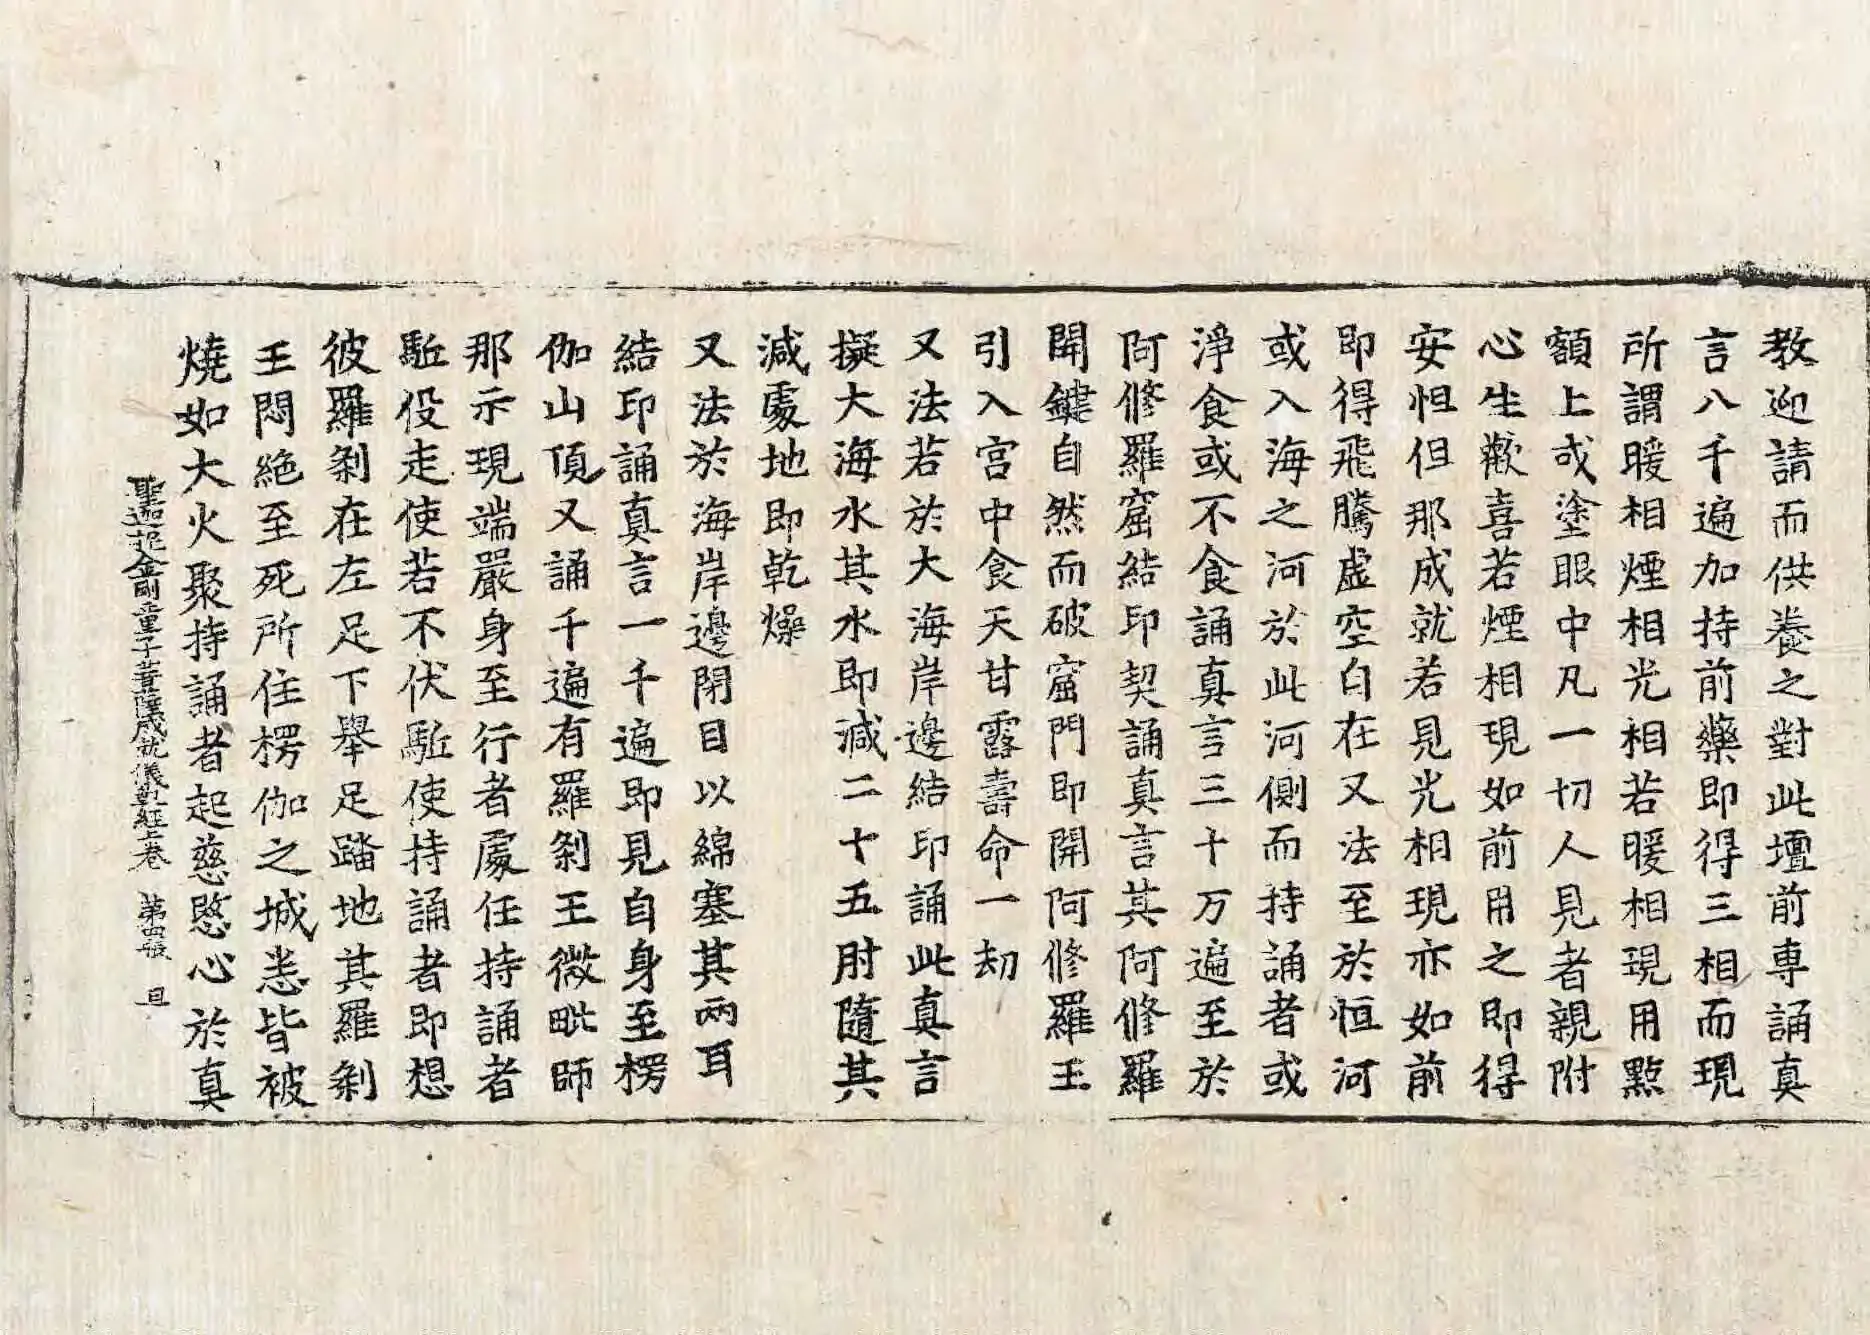 教迎請而供養之對此壇前專誦真
言八千遍加持前藥即得三相而現
所謂暖相煙相光相若暖相現用點
額上或塗眼中凡一切人見者親附
心生歡喜若煙相現如前用之即得
安怛但那成就若見光相現亦如前
即得飛騰虛空自在又法至於恒河
或入海之河於此河側而持誦者或
淨食或不食誦真言三十万遍至於
阿修羅窟結印契誦真言其阿修羅
開鍵自然而破窟門即開阿修羅王
引入宮中食天甘露壽命一劫
又法若於大海岸邊結印誦此真言
擬大海水其水即減二十五肘隨其
減處地即乾燥
又法於海岸邊閉目以綿塞其兩耳
結印誦真言一千遍即見自身至楞
伽山頂又誦千遍有羅剎王微毗師
那示現端嚴身至行者處任持誦者
駈役走使若不伏駈使持誦者即想
彼羅剎在左足下舉足踏地其羅剎
王悶絕至死所住楞伽之城恙皆被
燒如大火聚持誦者起慈愍心於真
聖迦抳金剛童子菩薩成就儀軌經上卷 第四張 旦